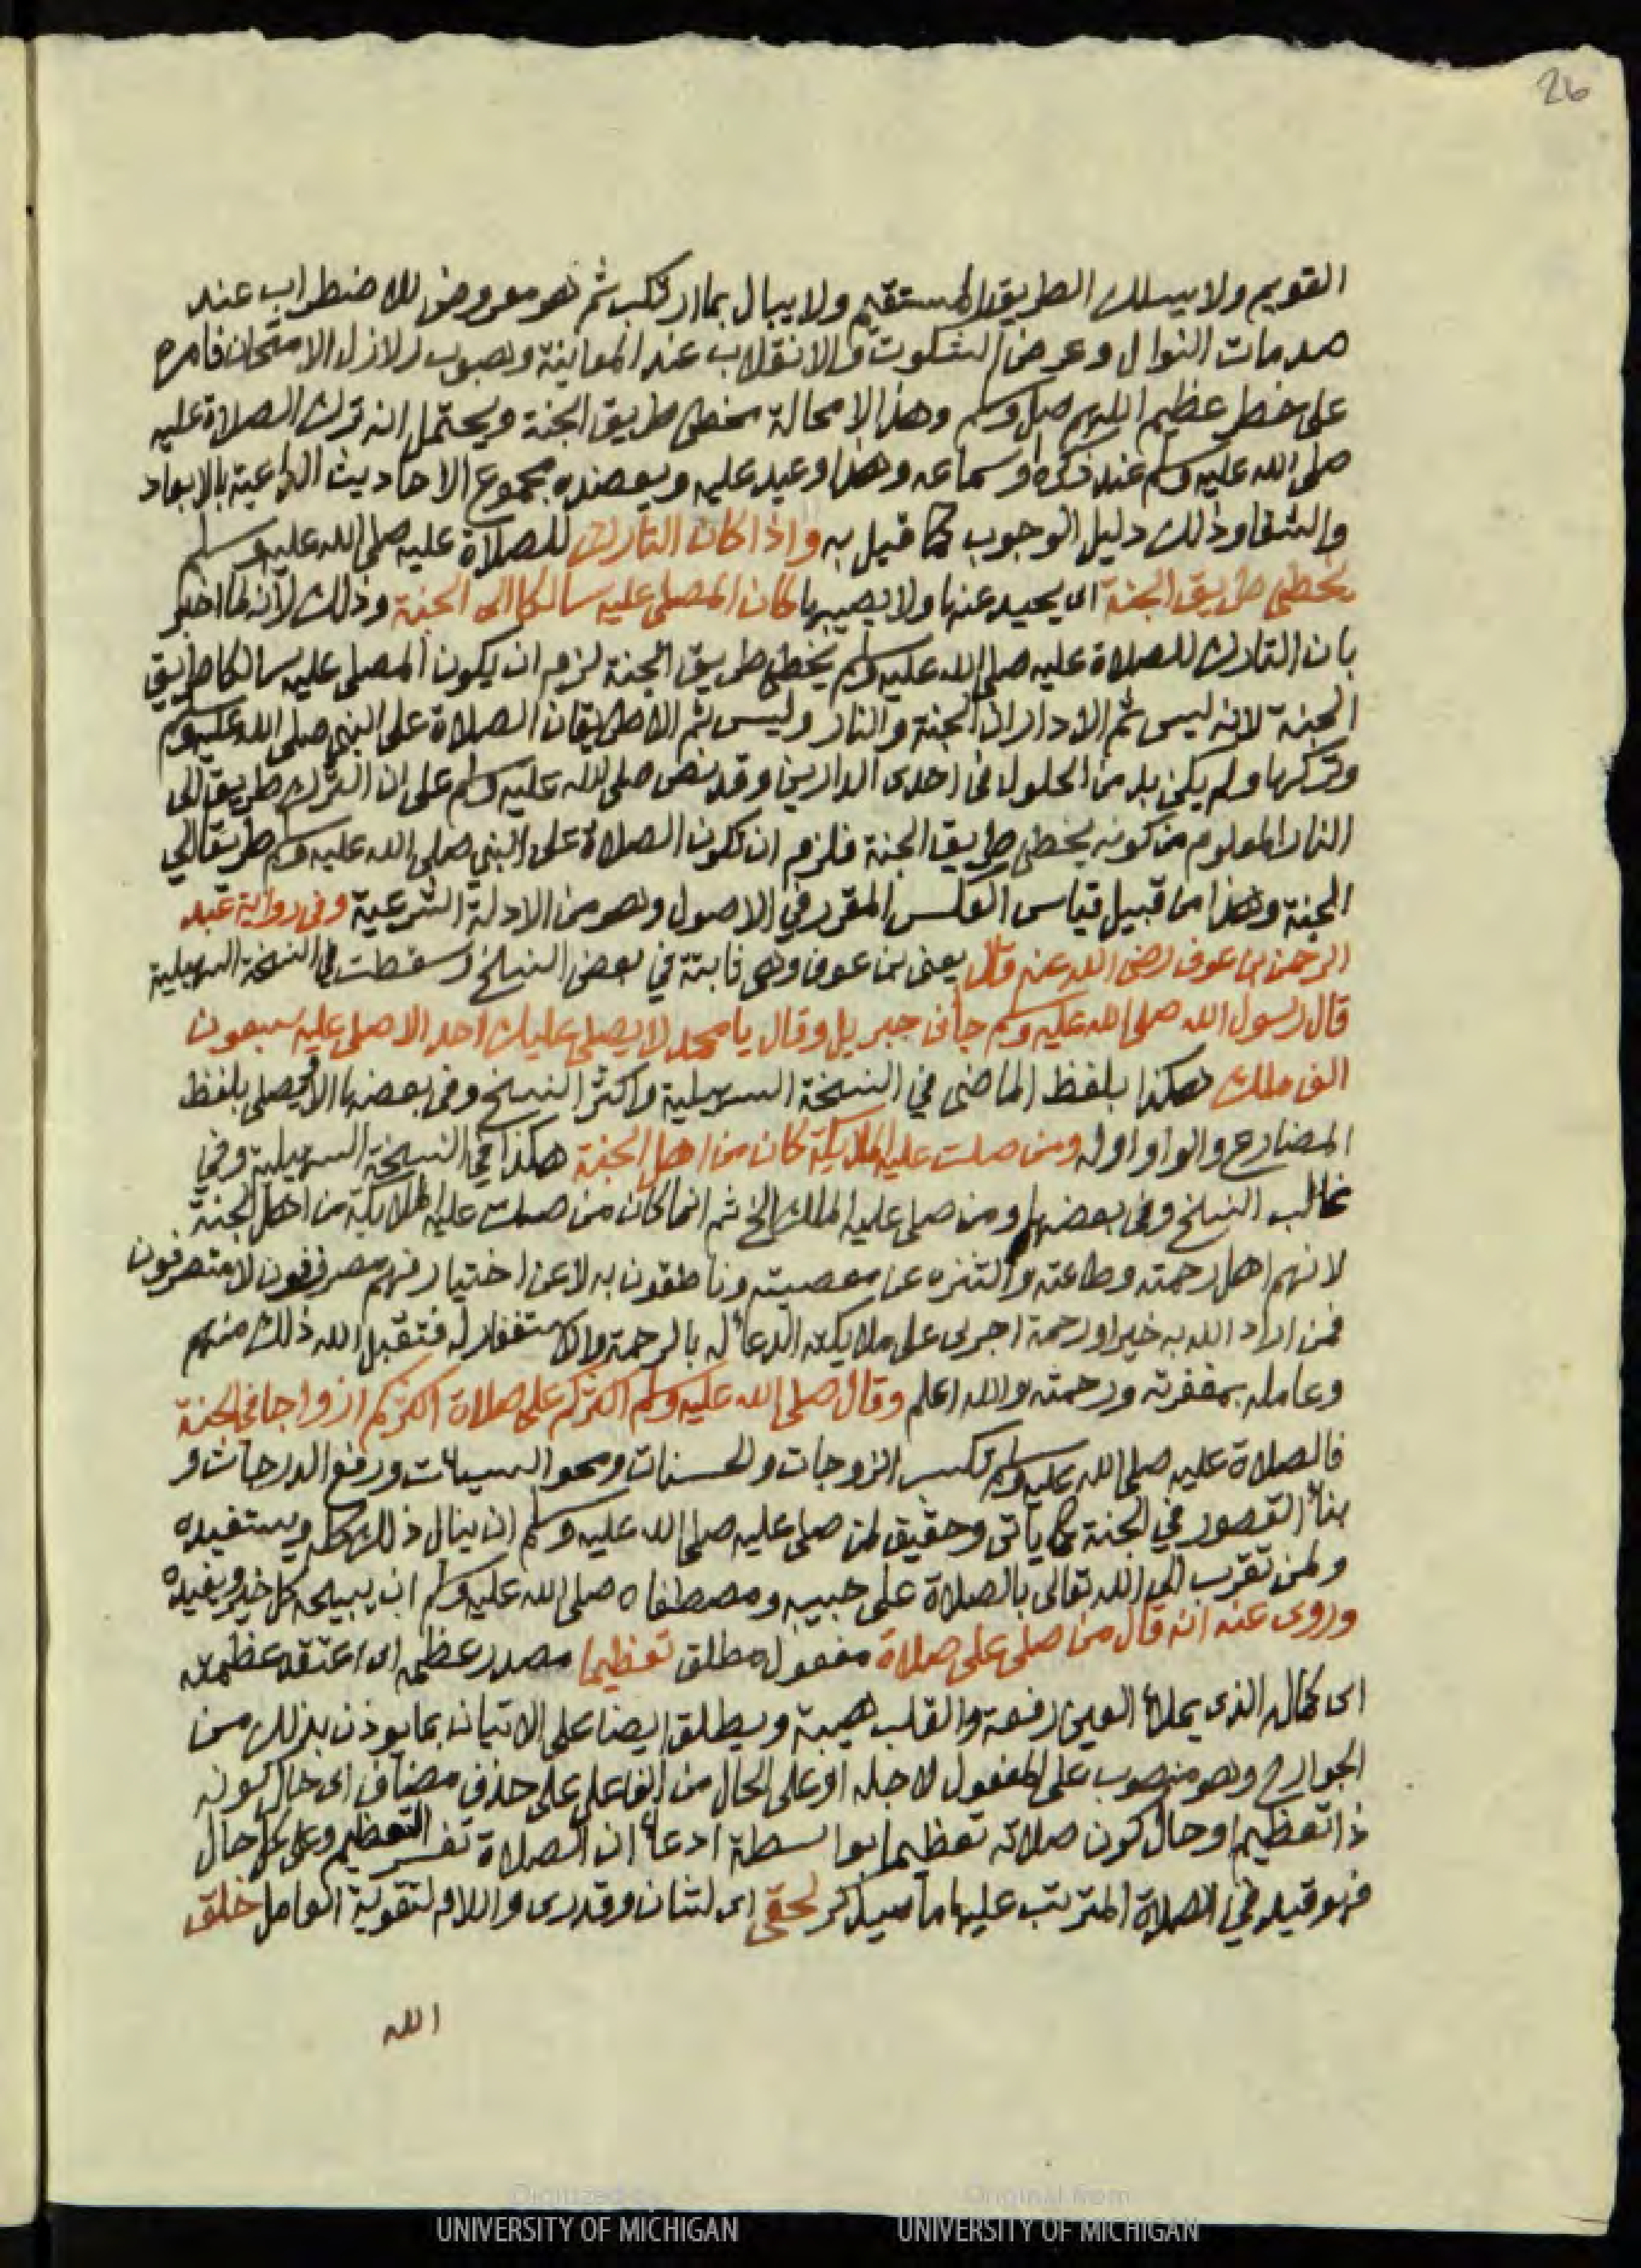 26
القويم ولا يسلك الطريق المستقيم ولا يبال بما ارتكب ثم هو معروض للاضطراب عند
صدمات النوال وعرض الشكوت والانقلاب عند المعاينة وهبوب زلازل الامتحان فامره
على خطر عظيم اللهم صل وسلم وهذا لا محالة مخطى طريق الجنة ويحتمل انه ترك الصلاة عليه
صلى الله عليه وسلم عند ذكره او سماعه وهذا وعيد عليه ويعضده مجموع الاحاديث الداعية بالابعاد
والشقا وذلك دليل الوجوب كما قيل به واذا كان التارك للصلاة عليه صلى الله عليه وسلم
يخطى طريق الجنة اى يحيد عنها ولا يصيبها كان المصلى عليه سالكا الى الجنة وذلك لانه لما اخبر
بان التارك للصلاة عليه صلى الله عليه وسلم يخطى طريق الجنة لزم ان يكون المصلى عليه سالكا طريق
الجنة لانه ليس ثم الا داران الجنة والنار وليس ثم الا طريقان الصلاة على النبى صلى الله عليه وسلم
وتركها ولم يكن بد من الحلول فى احدى الدارين وقد نص صلى الله عليه وسلم على ان الترك طريق الى
النار المعلوم من كونه يخطى طريق الجنة فلزم ان تكون الصلاة على النبى صلى الله عليه وسلم طريقا الي
الجنة وهذا من قبيل قياس العكس المقرر في الاصول وهو من الادلة الشرعية وفى رواية عبد
الرحمن بن عوف رضى الله عنه قال يعنى بن عوف وهى ثابتة في بعض النسخ وسقطت في النسخة السهيلية
قال رسول الله صلى الله عليه وسلم جانى جبريل وقال يا محمد لا يصلى عليك احد الا صلى عليه سبعون
الف ملك هكذا بلفظ الماضى في النسخة السهيلية واكثر النسخ وفى بعضها الا ويصلى بلفظ
المضارع والواو اوله ومن صلت عليه الملايكة كان من اهل الجنة هكذا في النسخة السهيلية وفي
غالب النسخ وفى بعضها ومن صلى عليه الملك الخ ثم انما كان من صلت عليه الملايكة من اهل الجنة
لانهم اهل رحمته وطاعته والتنزه عن معصيته وناطقون به لا عن اختيار فهم مصرفون لا متصرفون
فمن اراد الله به خيرا ورحمة اجرى على ملايكته الدعا له بالرحمة والاستغفار له فتقبل الله ذلك منهم
وعامله بمغفرته ورحمته والله اعلم وقال صلى الله عليه وسلم اكثركم على صلاة اكثركم ازواجا في الجنة
فالصلاة عليه صلى الله عليه وسلم تكسب الزوجات والحسنات ومحو السيئات ورفع الدرجات و
بنأ القصور في الجنة كما ياتى وحقيق لمن صلى عليه صلى الله عليه وسلم ان ينال ذلك كله ويستفيده
ولمن تقرب الى الله تعالى بالصلاة على حبيبه ومصطفاه صلى الله عليه وسلم ان يبيحه كل خير ويفيده
وروى عنه انه قال من صلى على صلاة مفعول مطلق تعظيما مصدر عظم اى اعتقد عظمته
اى كماله الذى يملأ العين رفعة والقلب هيبة ويطلق ايضا على الاتيان بما يوذن بذلك من
الجوارح وهو منصوب على المفعول لاجله او على الحال من الفاعل على حذف مضاف اى حال كونه
ذا تعظيم او حال كون صلاته تعظيما بواسطة ادعا ان الصلاة تفسر التعظيم وعلى كل حال
فهو قيد في الصلاة المترتب عليها ما سيذكر لحقى اى لشان وقدرى واللام لتقوية العامل خلق
الله
Digitized by
UNIVERSITY OF MICHIGAN
Original from
UNIVERSITY OF MICHIGAN